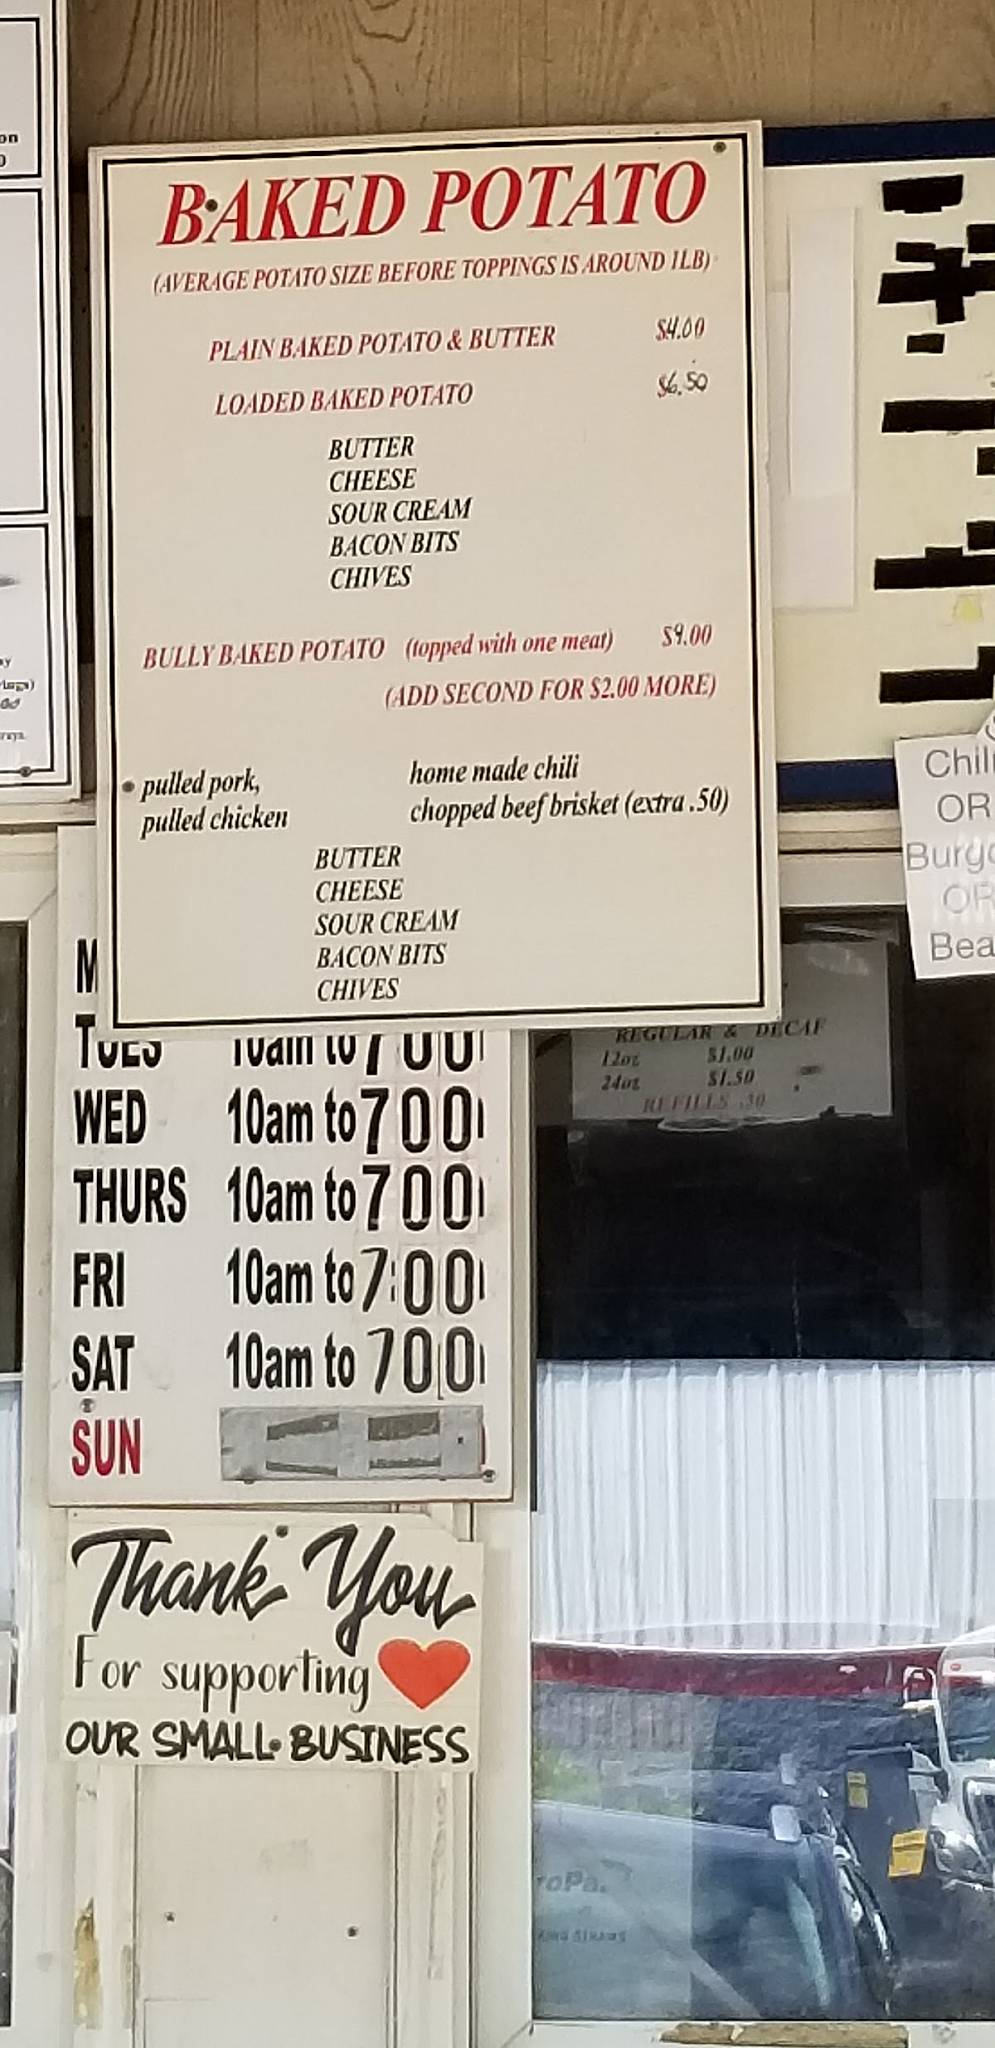 BAKED POTATO
(AVERAGE POTATO SIZE BEFORE TOPPINGS IS AROUND 1LB)
PLAIN BAKED POTATO & BUTTER $4.00
LOADED BAKED POTATO $6.50
BUTTER
CHEESE
SOUR CREAM
BACON BITS
CHIVES
BULLY BAKED POTATO (topped with one meat) $9.00
(ADD SECOND FOR $2.00 MORE)
pulled pork, home made chili
pulled chicken chopped beef brisket (extra .50)
BUTTER
CHEESE
SOUR CREAM
BACON BITS
CHIVES
Chili
OR
OR
REGULAR & DECAF
12oz $1.00
24oz $1.50
REFILLS .50
TUES 10am to 700
WED 10am to 700
THURS 10am to 700
FRI 10am to 7:00
SAT 10am to 700
SUN
Thank You
For supporting
OUR SMALL BUSINESS